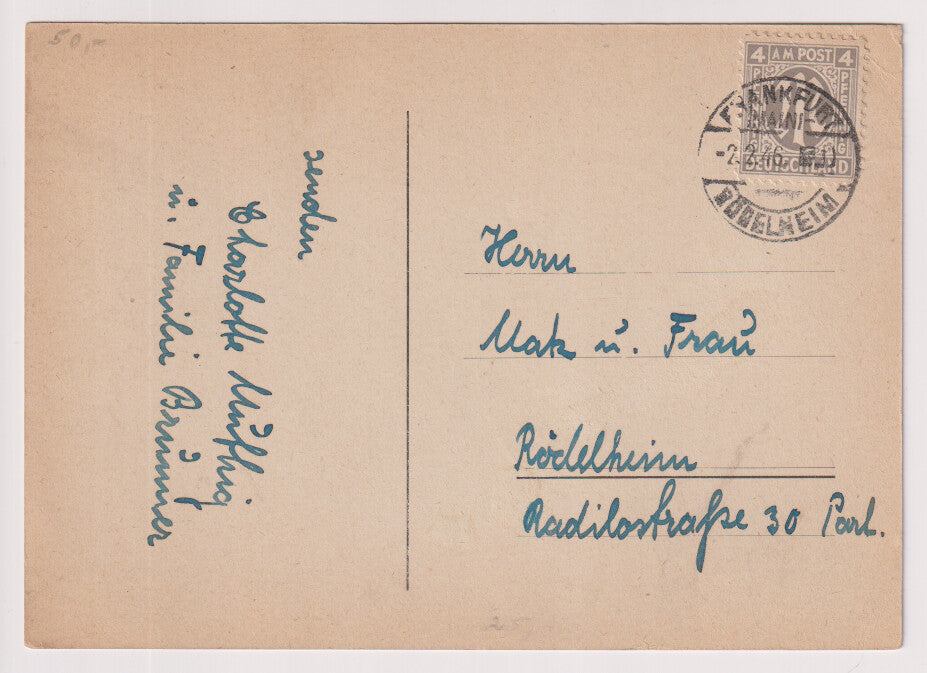 50,-
4 AM POST 4
PFENNIG
DEUTSCHLAND
FRANKFURT
(MAIN)-
-2.2.46
RÖDELHEIM
senden
Charlotte
u. Familie Brünner
Herrn
Mak u. Frau
Rödelheim
Radilostraße 30 Part.
25